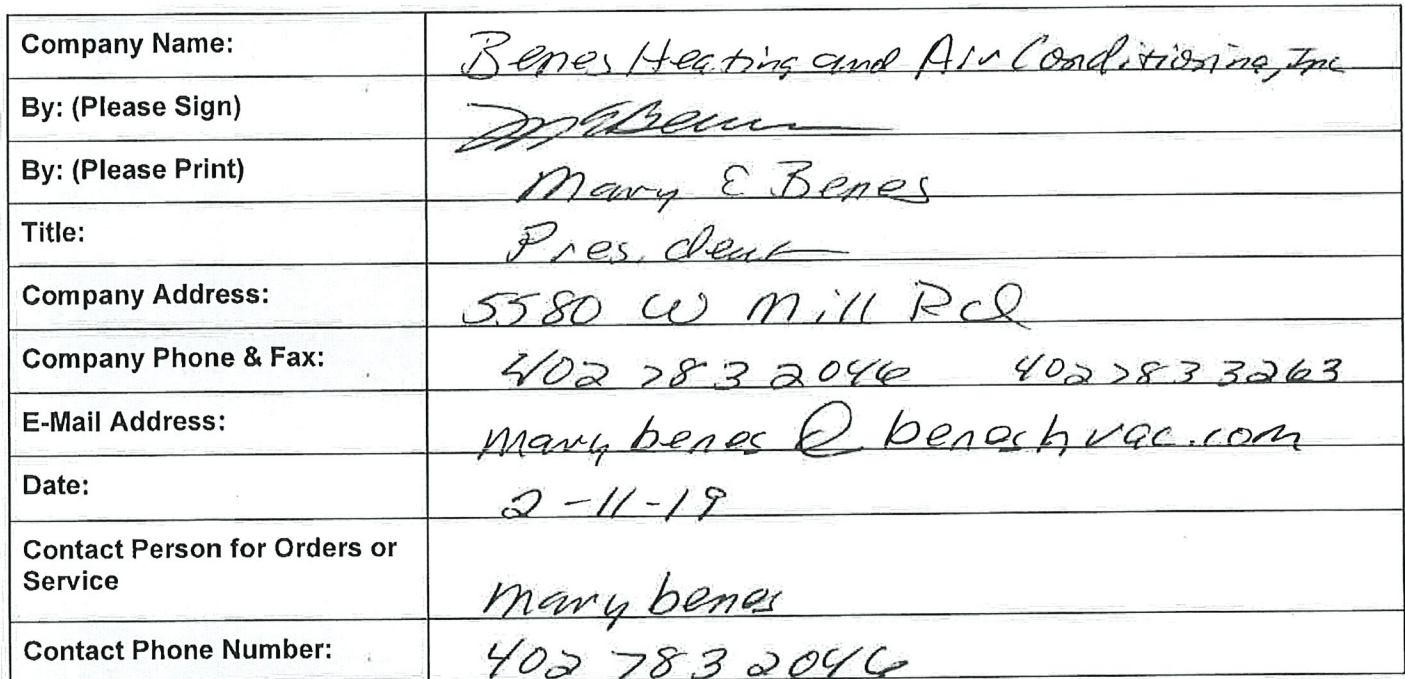 Company Name: Benes Heating and Air Conditioning, Inc
By: (Please Sign) MEBenes
By: (Please Print) Mary E Benes
Title: President
Company Address: 5580 W Mill Rd
Company Phone & Fax: 402 783 2046 402 783 3263
E-Mail Address: marybenes@beneshvac.com
Date: 2-11-19
Contact Person for Orders or
Service mary benes
Contact Phone Number: 402 783 2046